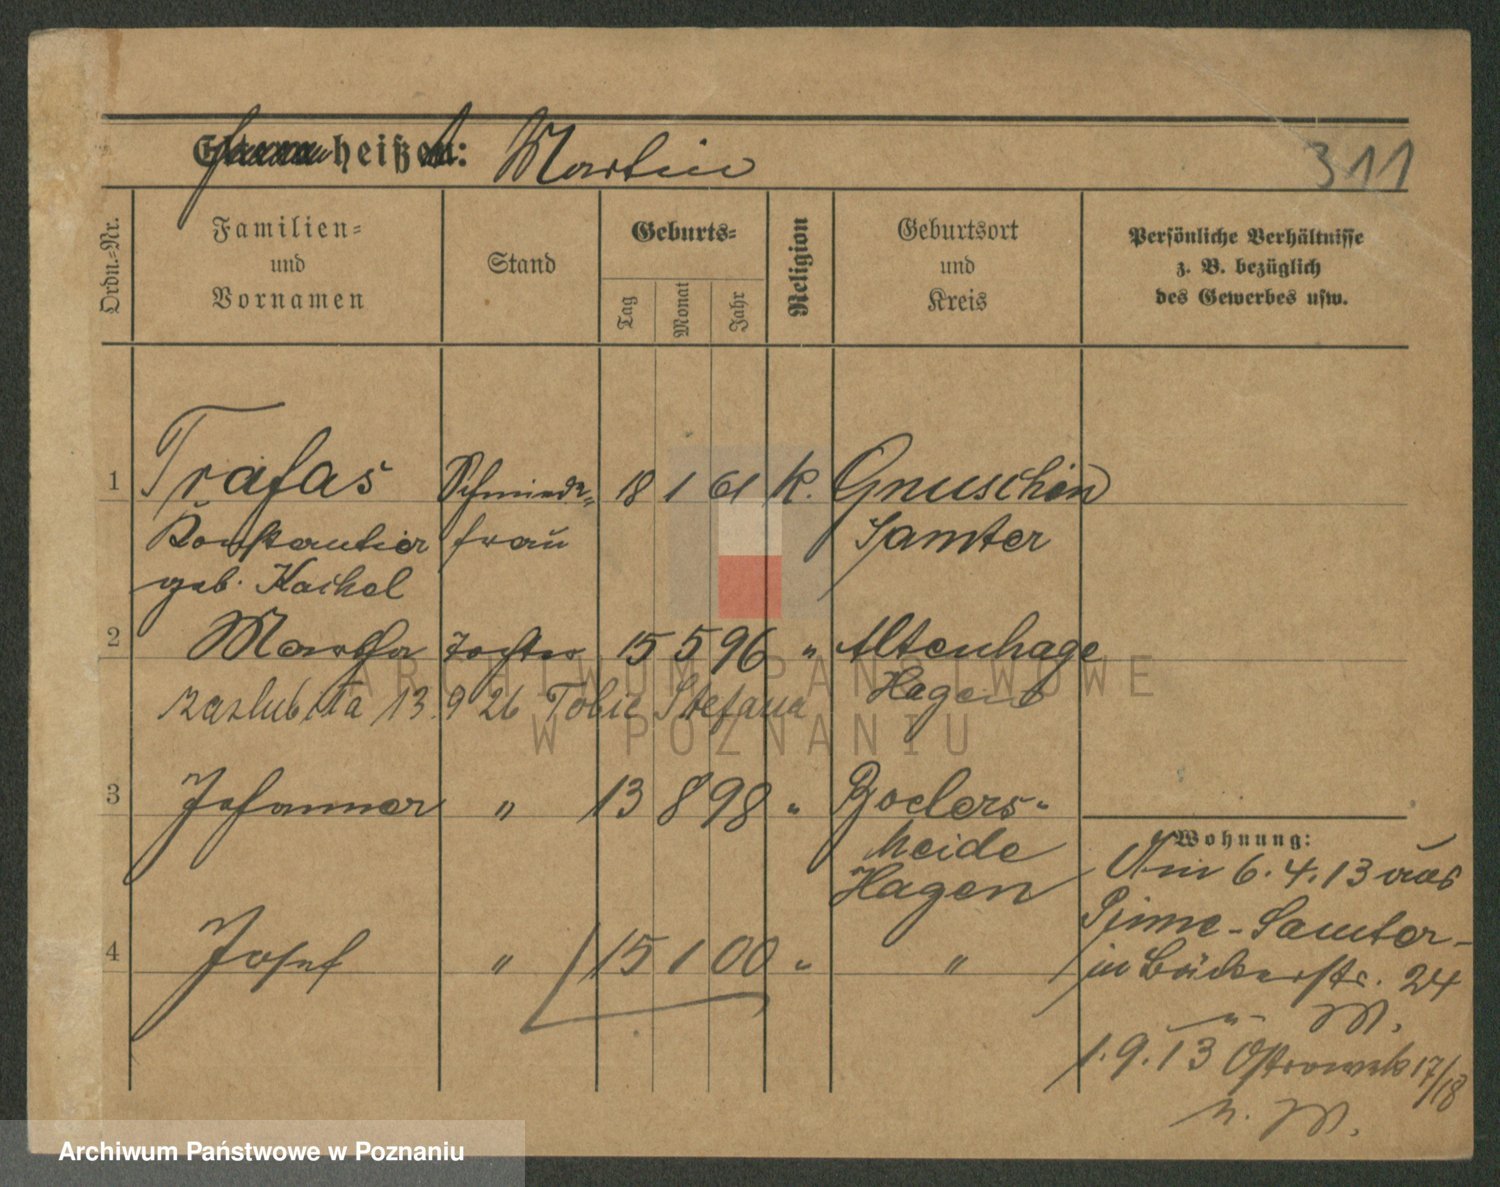 heißt: Martin
311
Ordn.-Nr.
Familien-
und
Vornamen
Stand
Geburts-
Tag
Monat
Jahr
Religion
Geburtsort
und
Kreis
Persönliche Verhältnisse
z. B. bezüglich
des Gewerbes usw.
1 Trafas Schmiede- 18 1 61 K. Gnuschin
frau Samter
geb.
2 Martha Tochter 15 5 96 " Altenhage
Hagen
zaślubiła 13.9 26 Tobic Stefana
3 " 13 8 98 "
heide
Hagen
4 Josef " 15 1 00 " "
Wohnung:
Am 6.4.13 aus
Pinne-Samter-
in Bäckerstr. 24
" M.
1.9.13 Ostrowek 17/18
n. M.
ARCHIWUM PAŃSTWOWE
W POZNANIU
Archiwum Państwowe w Poznaniu